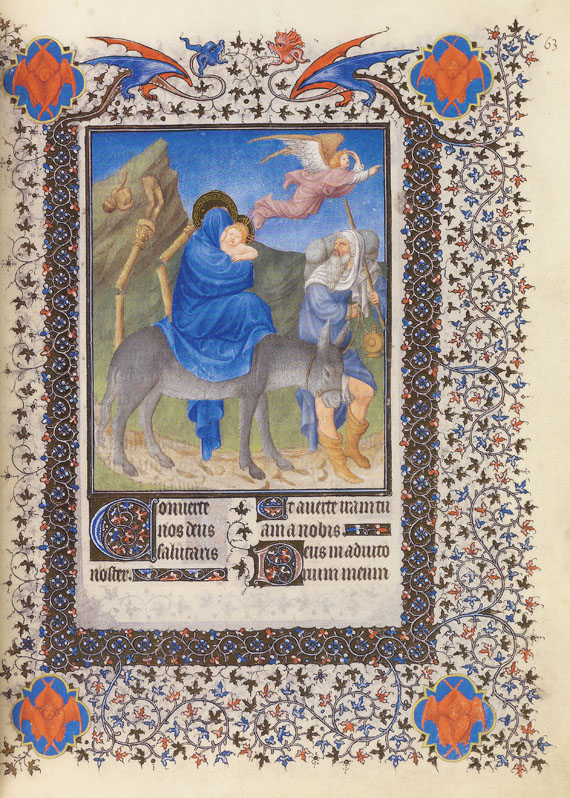 63
Conuerte
nos deus
salutaris
noster.
Et auerte iram tu
am a nobis.
Deus in adiuto
rium meum